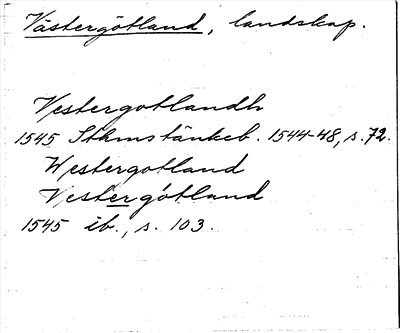 Västergötland, landskap.
Vestergotlandh
1545 Sthms tänkeb. 1544-48, s. 72.
Westergotland
Vestergötland
1545 ib., s. 103.